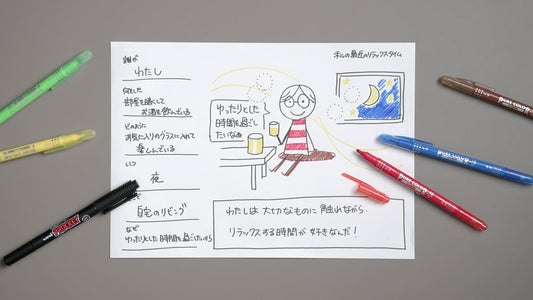 私の最近のリラックスタイム
誰が
わたし
何をした
部屋を暗くして
お酒を飲んでいる
どのように
お気に入りのグラスに入れて
楽しんでいる
いつ
夜
自宅のリビング
なぜ
ゆったりとした時間を過ごしたいから
ゆったりとした
時間を過ごし
たいなぁ
わたしは 大切なものに 触れながら、
リラックスする時間が 好きなんだ!